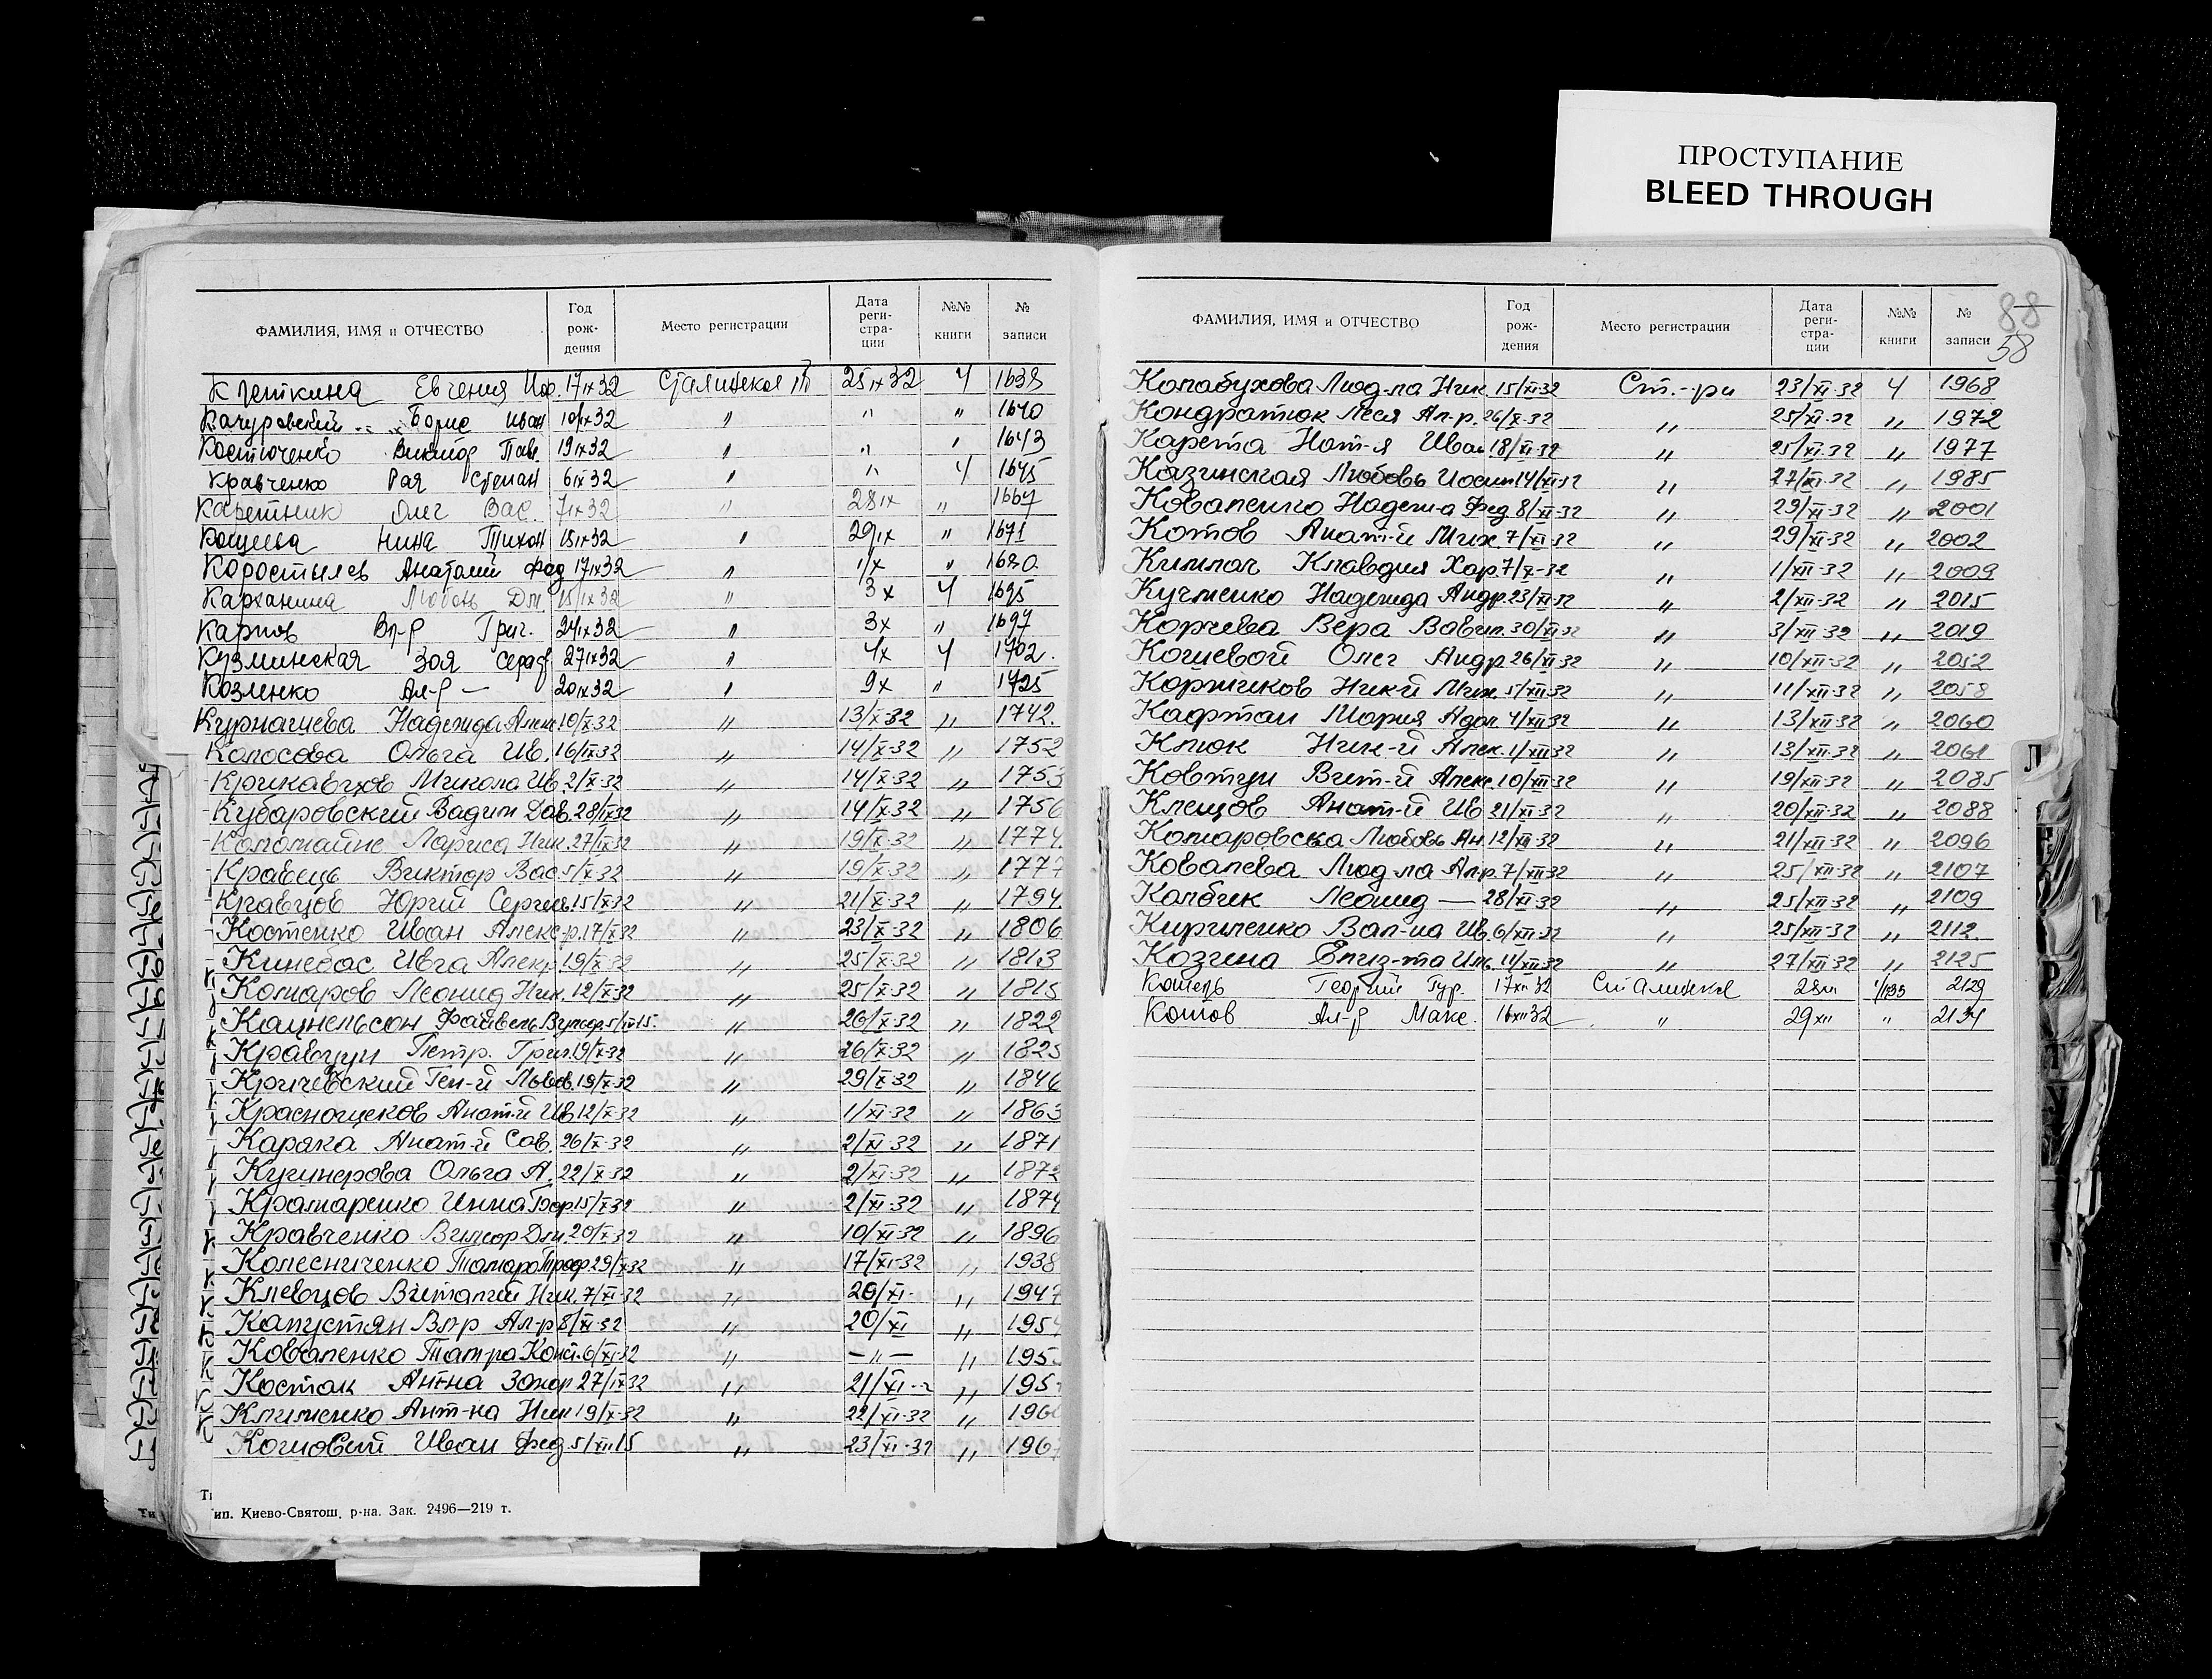 ПРОСТУПАНИЕ
BLEED THROUGH
ФАМИЛИЯ, ИМЯ и ОТЧЕСТВО Год рождения Место регистрации Дата регистрации №№ книги № записи
Клеткина Евгения 17 IX 32 25 IX 32 4 1638
Качуровский Борис Иван 10 IX 32 " " " 1640
Костюченко Виктор Павл. 19 IX 32 " " " 1643
Кравченко Рая Степан 6 IX 32 " " 4 1645
Каретник Олег Вас. 7 IX 32 " 28 IX "
Кощеева Нина Тихон 15 IX 32 " 29/IX " 1671
Коростылев Анатолий Фед 17 IX 32 " 1/X " 1680
Карханина Любовь Дм 15 IX 32 " 3 X 4 1695
Карпов Вл-р Григ. 24 IX 32 " 3 X " 1697
Кузминская Зоя Сераф 27 IX 32 " 4 X 4 1702.
Козленко Ал-р — 20 IX 32 " 9 X " 1725
Курнашева Надежда Алек 10/X-32 " 13/X-32 " 1742.
Колосова Ольга Ив. 16/IX 32 " 14/X-32 " 1752
Микола Ив 2/X-32 " 14/X-32 " 1753
Кубаровский Вадим Дав. 28/IX 32 " 14/X-32 " 1756
Коломайче Лариса Ник. 27/IX 32 " 19/X-32 " 1774
Кравець Виктор Вас 5/X-32 " 19/X-32 " 1777
Кравцов Юрий Сергее. 15/X-32 " 21/X-32 " 1794
Костенко Иван Алекс-р. 17/X-32 " 23/X-32 " 1806
Кинебас Ивга Алекр 19/X-32 " 25/X-32 " 1813
Комаров Леонид Ник. 12/X-32 " 25/X-32 " 1815
Кацнельсон Файвель " 26/X-32 " 1822
Кравцун Петр. Григ. 19/X-32 " 26/X-32 " 1825
Кричевский Ген-й Львов. 19/X-32 " 29/X-32 " 1846
Краснощеков Анат-й Ив 12/X-32 " 1/XI-32 " 1863
Каряка Анат-й Сав. 26/X-32 " 2/XI-32 " 1871
Кушнерова Ольга А. 22/X-32 " 2/XI-32 " 1872
Крамаренко Инна Бор 15/X-32 " 2/XI-32 " 1874
Кравченко Виктор Дм. 20/X-32 " 10/XI-32 " 1896
Колесниченко Тамара Троф 29/X-32 " 17/XI-32 " 1938
Клевцов Виталий Ник. 7/XI-32 " 20/XI- " 1947
Капустян Вл-р Ал-р 8/XI-32 " 20/XI " 195
Коваленко Конст. 6/XI-32 " — " — " 195
Костак Ант-на Захар 27/IX 32 " 21/XI " 195
Клименко Ант-на Ник 19/X-32 " 22/XI-32 " 196
Кошовий Иван Фед 5/XII 15 " 23/XI-32 " 196
Тип. Киево-Святош. р-на. Зак. 2496—219 т.
ФАМИЛИЯ, ИМЯ и ОТЧЕСТВО Год рождения Место регистрации Дата регистрации №№ книги № записи
88
58
Колабухова Люд-ла Ник 15/XI 32 Ст.-ри 23/XI-32 4 1968
Кондратюк Леся Ал-р. 26/X-32 " 25/XI-32 " 1972
Карета Нат-я Иван 18/XI-32 " 25/XI-32 " 1977
Казинская Любовь Иосип 14/XI 32 " 27/XI-32 " 1985
Коваленко Надежд-а Фед 8/XI-32 " 29/XI-32 " 2001
Котов Анат-й Мих. 7/XI 32 " 29/XI-32 " 2002
Клавдия Хар. 7/X-32 " 1/XII-32 " 2009
Кучменко Надежда Андр. 23/XI-32 " 2/XII-32 " 2015
Корчева Вера Вавил. 30/XI 32 " 3/XII-32 " 2019
Кошевой Олег Андр 26/XI 32 " 10/XII-32 " 2052
Коржиков Ник-й Мих. 5/XII 32 " 11/XII-32 " 2058
Кафтан Мария Адол. 4/XII 32 " 13/XII-32 " 2060
Клюк Ник-й Алек. 1/XII 32 " 13/XII-32 " 2061
Ковтун Вит-й Алекс. 10/XII 32 " 19/XII-32 " 2085
Клещов Анат-й Ив 21/XI-32 " 20/XII-32 " 2088
Комаровска Любовь Ан. 12/XII-32 " 21/XII-32 " 2096
Ковалева Люд-ла Ал-р. 7/XII 32 " 25/XII-32 " 2107
Колбик Леонид — 28/XI-32 " 25/XII-32 " 2109
Кириленко Вал-на Ив. 6/XII-32 " 25/XII-32 " 2112.
Козина Елиз-та Иль. 11/XII 32 " 27/XII-32 " 2125
Котель Георгий Гур. 17 XII 32 Сталинка 28 XII 1/1933 2129
Котов Ал-р Макс. 16 XII 32 " 29 XII " 2134